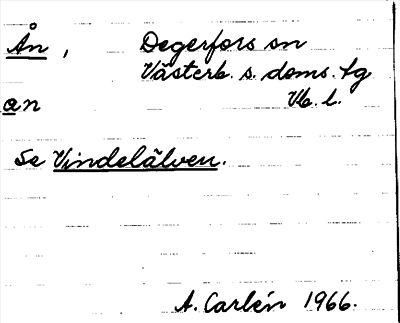 Ån, Degerfors sn
Västerb. s. doms. tg
an Vb. l.
Se Vindelälven.
A. Carlén 1966.